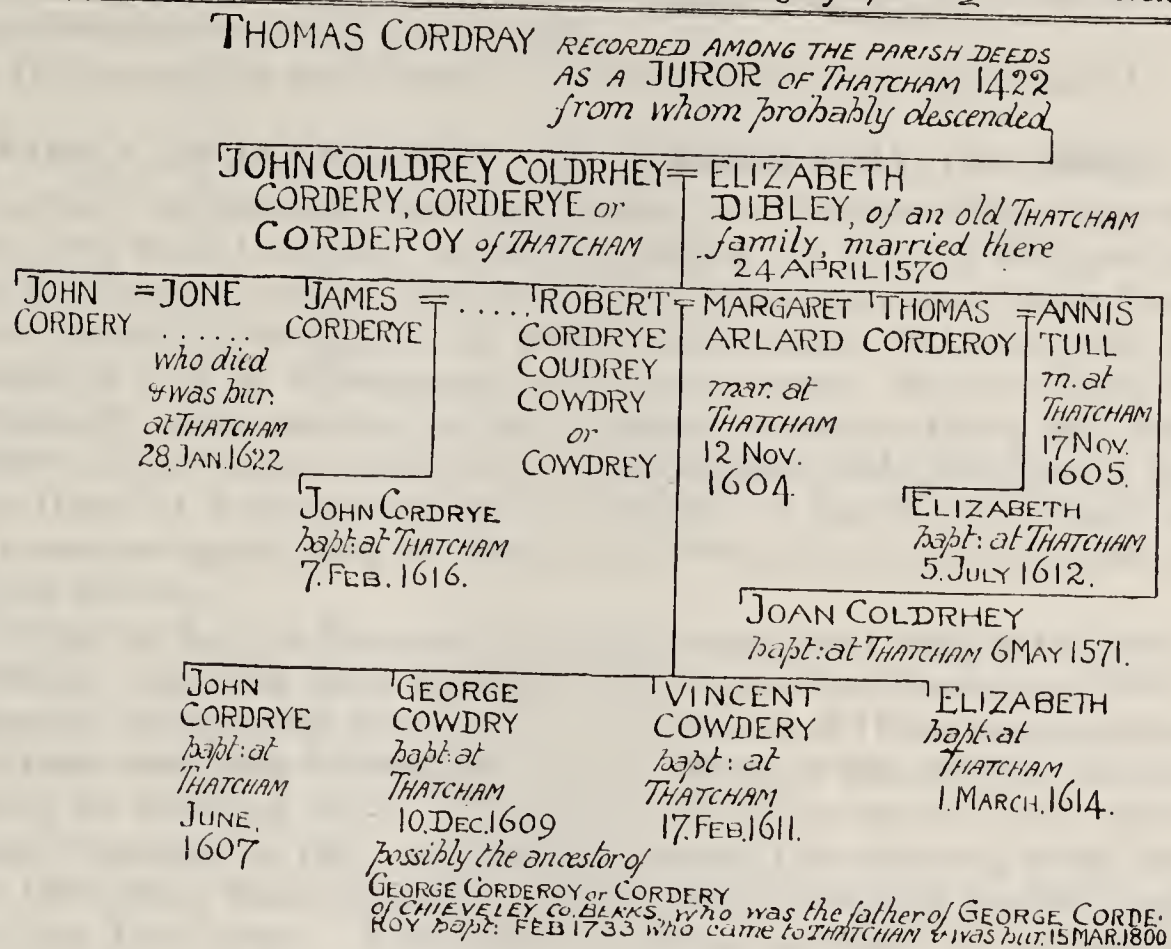 THOMAS CORDRAY RECORDED AMONG THE PARISH DEEDS
AS A JUROR OF THATCHAM 1422
from whom probably descended
JOHN COULDREY COLDRHEY = ELIZABETH
CORDERY, CORDERYE or DIBLEY, of an old THATCHAM
CORDEROY of THATCHAM family, married there
24 APRIL 1570
JOHN = JONE
CORDERY ......
who died
& was bur:
at THATCHAM
28. JAN. 1622
JAMES = .....
CORDERYE
ROBERT = MARGARET
CORDRYE ARLARD
COUDREY mar. at
COWDRY THATCHAM
or 12 Nov.
COWDREY 1604.
THOMAS = ANNIS
CORDEROY TULL
m. at
THATCHAM
17 Nov.
1605.
JOHN CORDRYE
bapt: at THATCHAM
7. FEB. 1616.
ELIZABETH
bapt: at THATCHAM
5. JULY 1612.
JOAN COLDRHEY
bapt: at THATCHAM 6 MAY 1571.
JOHN
CORDRYE
bapt: at
THATCHAM
JUNE.
1607
GEORGE
COWDRY
bapt: at
THATCHAM
10. DEC. 1609
possibly the ancestor of
GEORGE CORDEROY or CORDERY
of CHIEVELEY Co. BERKS, who was the father of GEORGE CORDE-
ROY bapt: FEB 1733 who came to THATCHAM & was bur. 15 MAR. 1800
VINCENT
COWDERY
bapt: at
THATCHAM
17. FEB. 1611.
ELIZABETH
bapt: at
THATCHAM
1. MARCH. 1614.